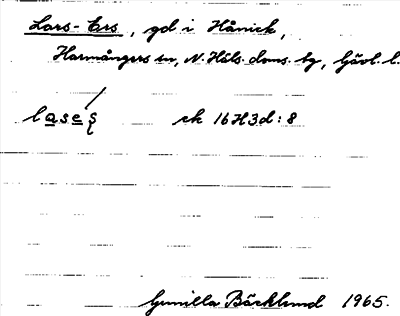 Lars-Ers, gd i Hånick,
Harmångers sn, N. Häls. doms. tg, Gävl. l.
lases
ek 16H3d:8
Gunilla Bäcklund 1965.